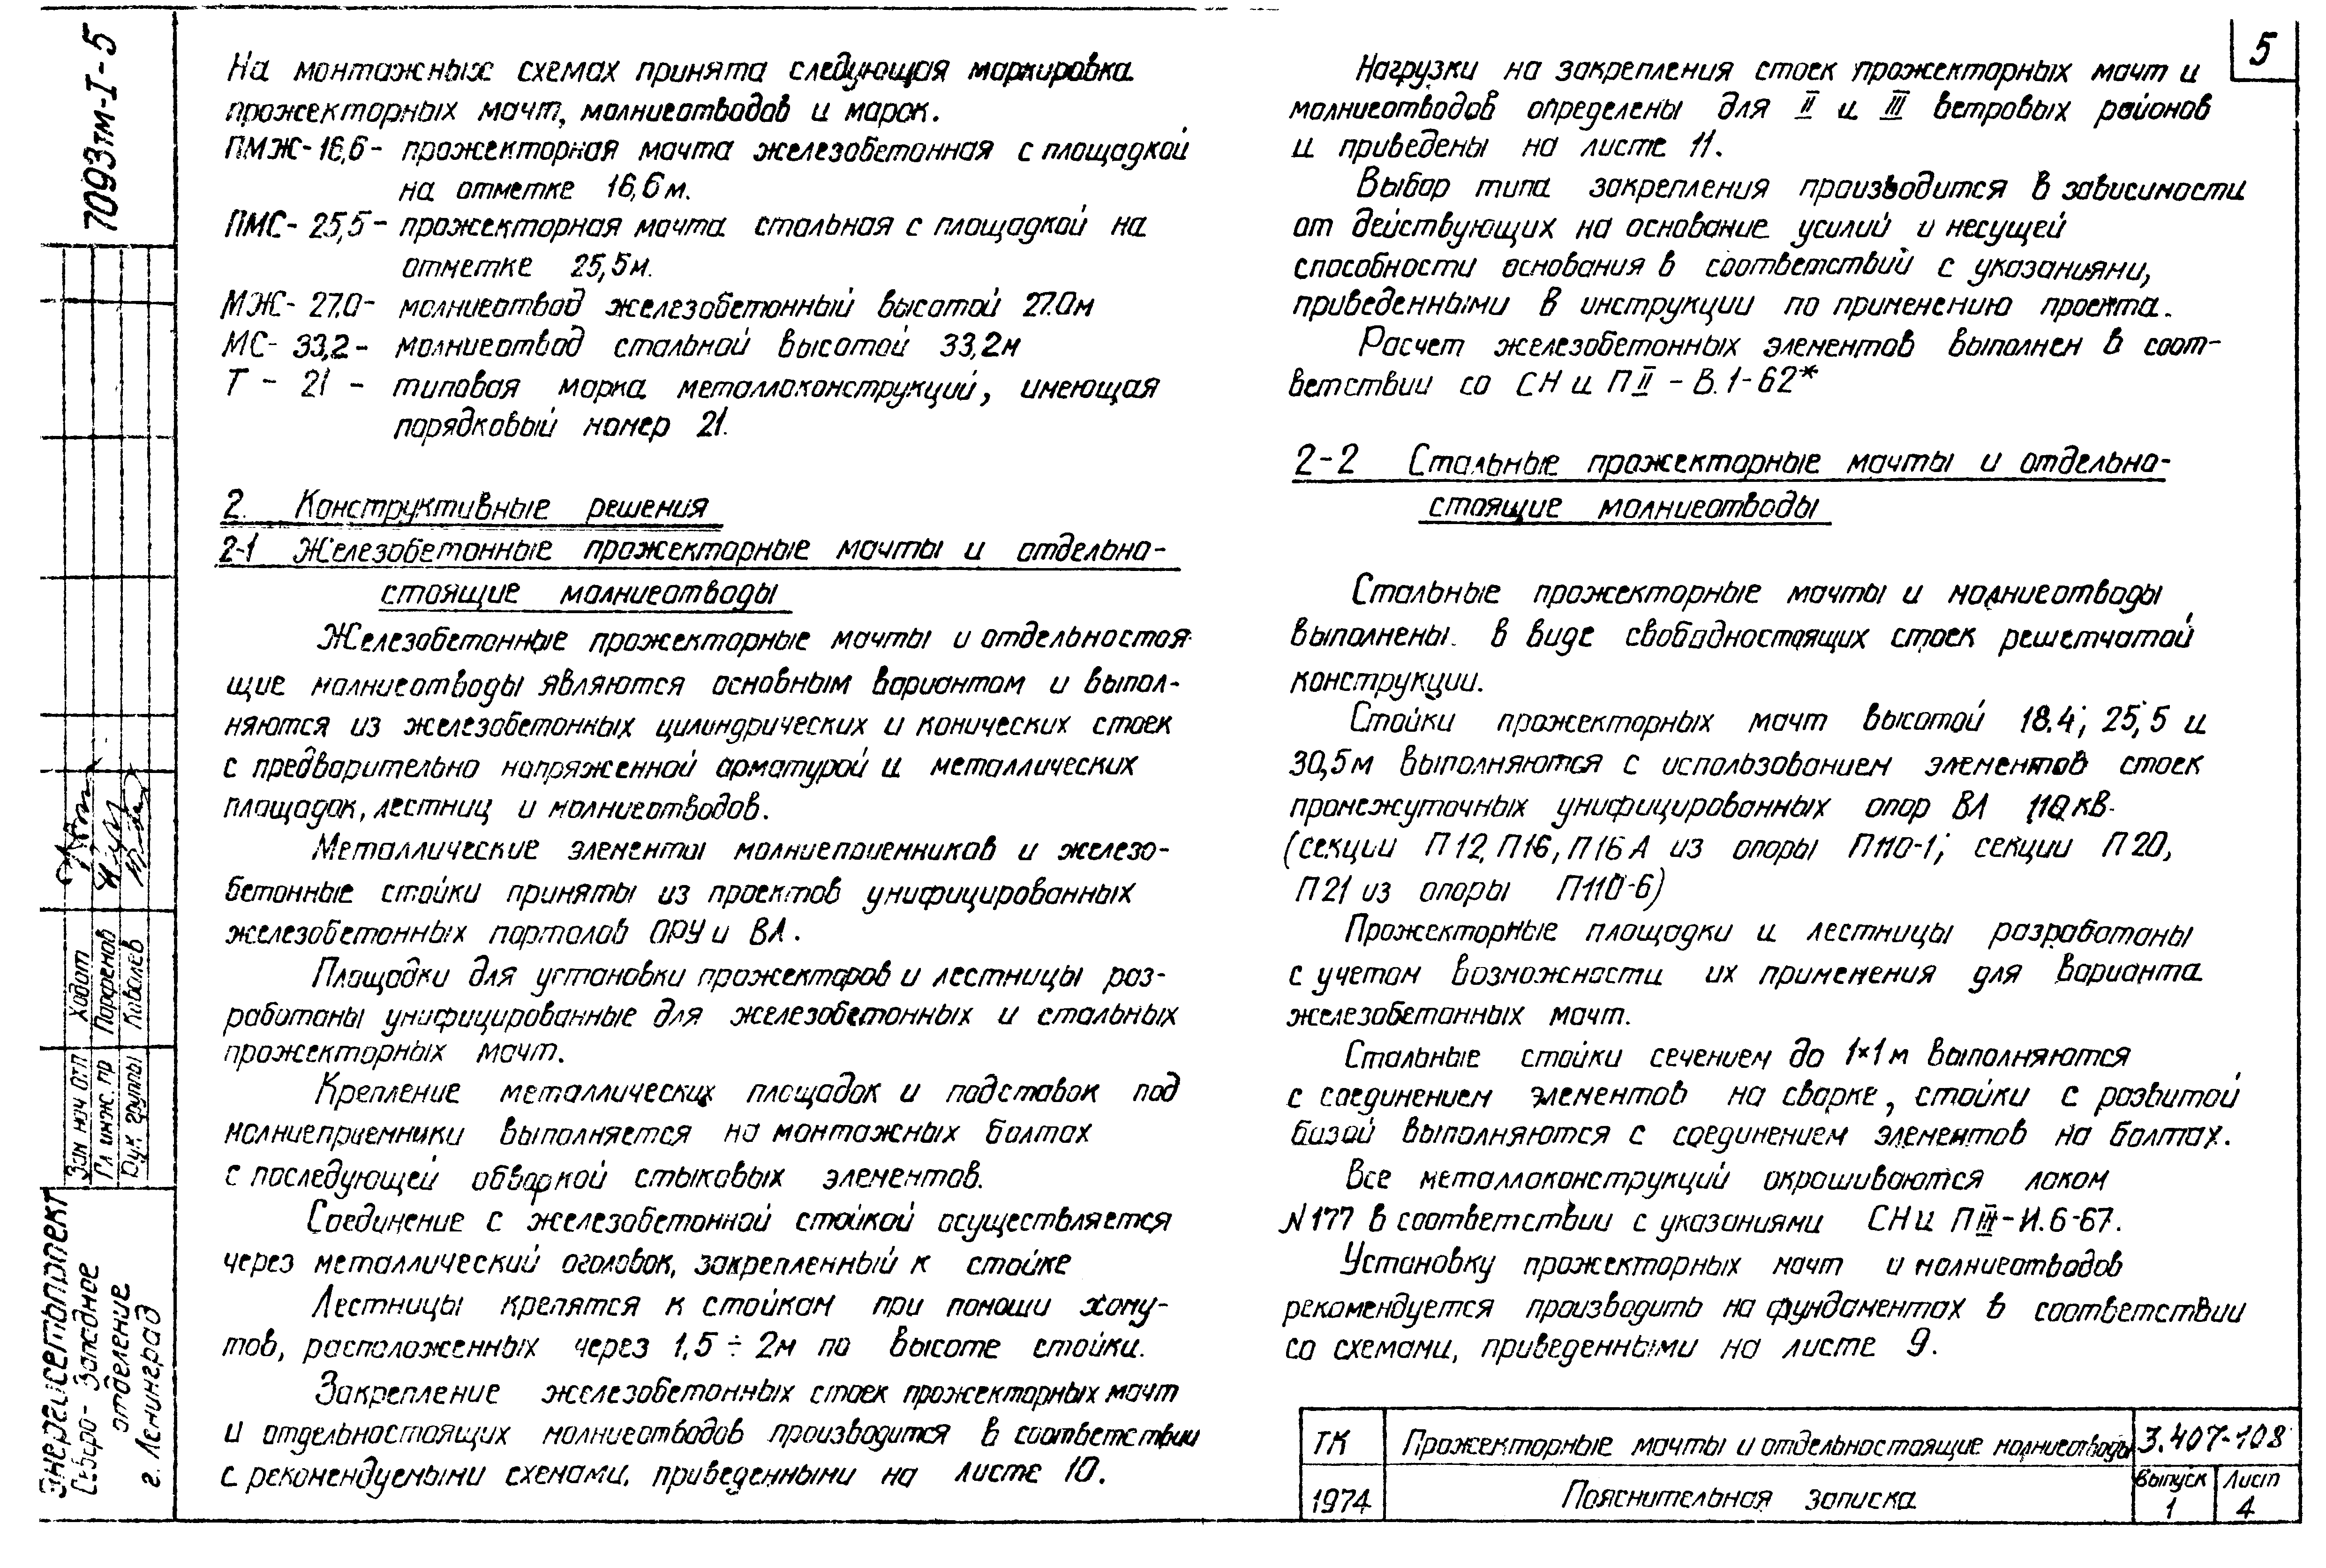 7093тм-I-5
5
На монтажных схемах принята следующая маркировка
прожекторных мачт, молниеотводов и марок.
ПМЖ-16,6- прожекторная мачта железобетонная с площадкой
на отметке 16,6м.
ПМС-25,5- прожекторная мачта стальная с площадкой на
отметке 25,5м.
МЖ-27.0- молниеотвод железобетонный высотой 27.0м
МС-33,2- молниеотвод стальной высотой 33,2м
Т - 21 - типовая марка металлоконструкций, имеющая
порядковый номер 21.
2. Конструктивные решения
2-1 Железобетонные прожекторные мачты и отдельно-
стоящие молниеотводы
Железобетонные прожекторные мачты и отдельностоя-
щие молниеотводы являются основным вариантом и выпол-
няются из железобетонных цилиндрических и конических стоек
с предварительно напряженной арматурой и металлических
площадок, лестниц и молниеотводов.
Металлические элементы молниеприемников и железо-
бетонные стойки приняты из проектов унифицированных
железобетонных порталов ОРУ и ВЛ.
Площадки для установки прожекторов и лестницы раз-
работаны унифицированные для железобетонных и стальных
прожекторных мачт.
Крепление металлических площадок и подставок под
молниеприемники выполняется на монтажных болтах
с последующей обваркой стыковых элементов.
Соединение с железобетонной стойкой осуществляется
через металлический оголовок, закрепленный к стойке
Лестницы крепятся к стойкам при помощи хому-
тов, расположенных через 1,5 ÷ 2м по высоте стойки.
Закрепление железобетонных стоек прожекторных мачт
и отдельностоящих молниеотводов производится в соответствии
с рекомендуемыми схемами, приведенными на листе 10.
Нагрузки на закрепления стоек прожекторных мачт и
молниеотводов определены для II и III ветровых районов
и приведены на листе 11.
Выбор типа закрепления производится в зависимости
от действующих на основание усилий и несущей
способности основания в соответствий с указаниями,
приведенными в инструкции по применению проекта.
Расчет железобетонных элементов выполнен в соот-
ветствии со СН и П II - В.1-62*
2-2 Стальные прожекторные мачты и отдельно-
стоящие молниеотводы
Стальные прожекторные мачты и молниеотводы
выполнены в виде свободностоящих стоек решетчатой
конструкции.
Стойки прожекторных мачт высотой 18.4; 25,5 и
30,5м выполняются с использованием элементов стоек
промежуточных унифицированных опор ВЛ 110 кВ
(секции П12, П16, П16А из опоры П110-1; секции П20,
П21 из опоры П110-6)
Прожекторные площадки и лестницы разработаны
с учетом возможности их применения для варианта
железобетонных мачт.
Стальные стойки сечением до 1×1м выполняются
с соединением элементов на сварке, стойки с развитой
базой выполняются с соединением элементов на болтах.
Все металлоконструкций окрашиваются лаком
N 177 в соответствии с указаниями СН и П III-И.6-67.
Установку прожекторных мачт и молниеотводов
рекомендуется производить на фундаментах в соответствии
со схемами, приведенными на листе 9.
Зам нач ОТП Ходот
Гл инж. пр Парфенов
Рук. группы Ковалев
Энергосетьпроект
Северо-Западное
отделение
г. Ленинград
ТК Прожекторные мачты и отдельностоящие молниеотводы 3.407-108
1974 Пояснительная записка
Выпуск 1 Лист 4